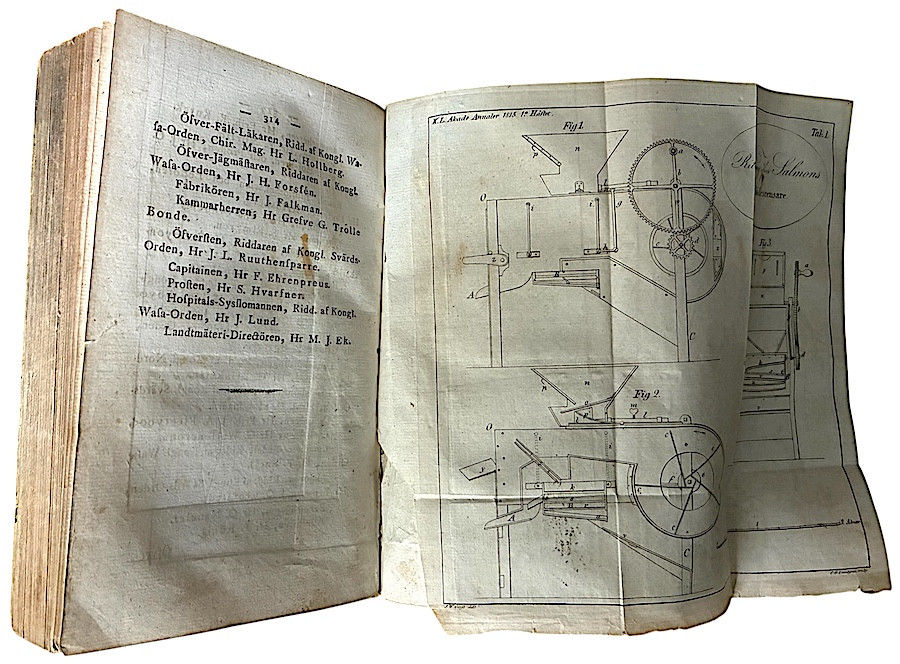 — 314 —
Öfver-Fält-Läkaren, Ridd. af Kongl. Wa-
ſa-Orden, Chir. Mag. Hr L. Hollberg.
Öfver-Jägmäſtaren, Riddaren af Kongl.
Waſa-Orden, Hr J. H. Forsſén.
Fabrikören, Hr J. Falkman.
Kammarherren, Hr Grefve G. Trolle
Bonde.
Öfverſten, Riddaren af Kongl. Svärds-
Orden, Hr J. L. Ruuthenſparre.
Capitainen, Hr F. Ehrenpreus.
Proſten, Hr S. Hvarfner.
Hoſpitals-Sysſlomannen, Ridd. af Kongl.
Waſa-Orden, Hr J. Lund.
Landtmäteri-Directören, Hr M. J. Ek.
K. L. Akade Annaler 1815. 1ª Häftet.
Tab. 1.
Salmons
Fig 1.
n
p
a
b
O
t
t
g
d
z
h
A
C
Fig 3
a
Fig 2.
n
m
l
O
c
y
A
C